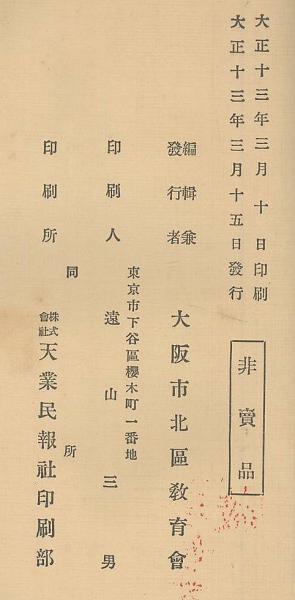 大正十三年三月十日印刷
大正十三年三月十五日發行
非賣品
編輯兼
發行者
大阪市北區敎育會
東京市下谷區櫻木町一番地
印刷人
遠山三男
同所
印刷所
株式
會社
天業民報社印刷部